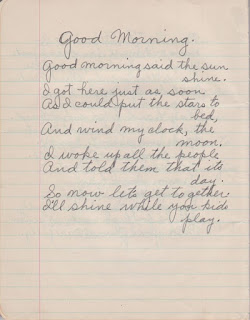 Good Morning.
Good morning said the sun
shine.
I got here just as soon
As I could put the stars to
bed,
And wind my clock, the
moon.
I woke up all the people
And told them that its
day.
So now lets get together
I'll shine while you kids
play.